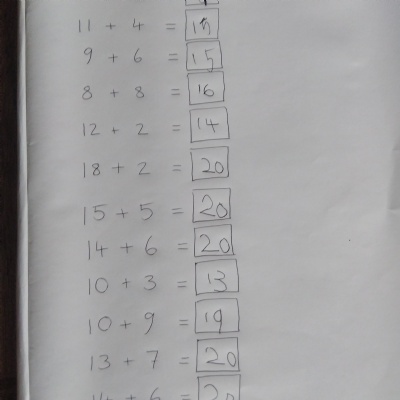 11 + 4 = 15
9 + 6 = 15
8 + 8 = 16
12 + 2 = 14
18 + 2 = 20
15 + 5 = 20
14 + 6 = 20
10 + 3 = 13
10 + 9 = 19
13 + 7 = 20
14 + 6 = 20